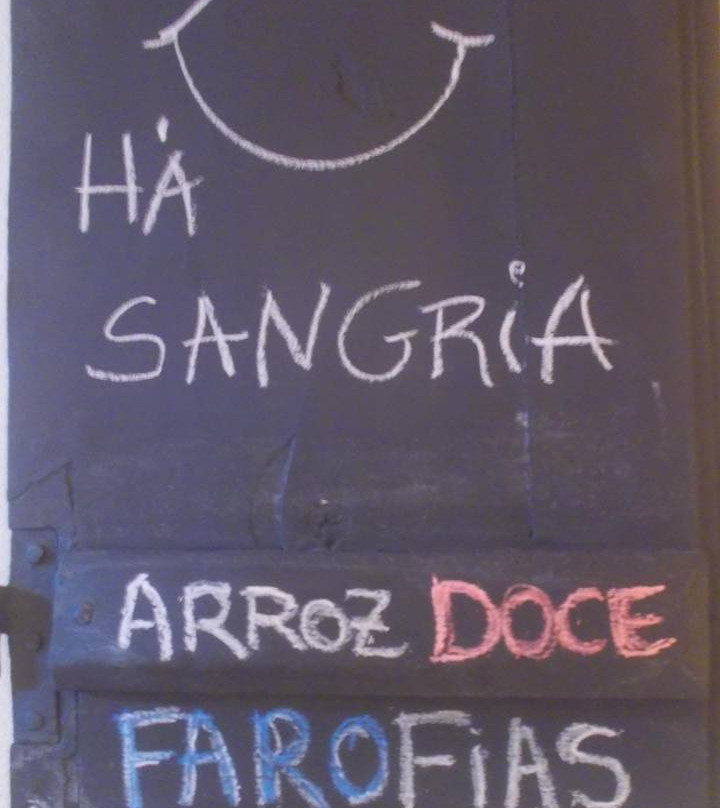 HÁ
SANGRiA
ARROZ DOCE
FAROFiAS